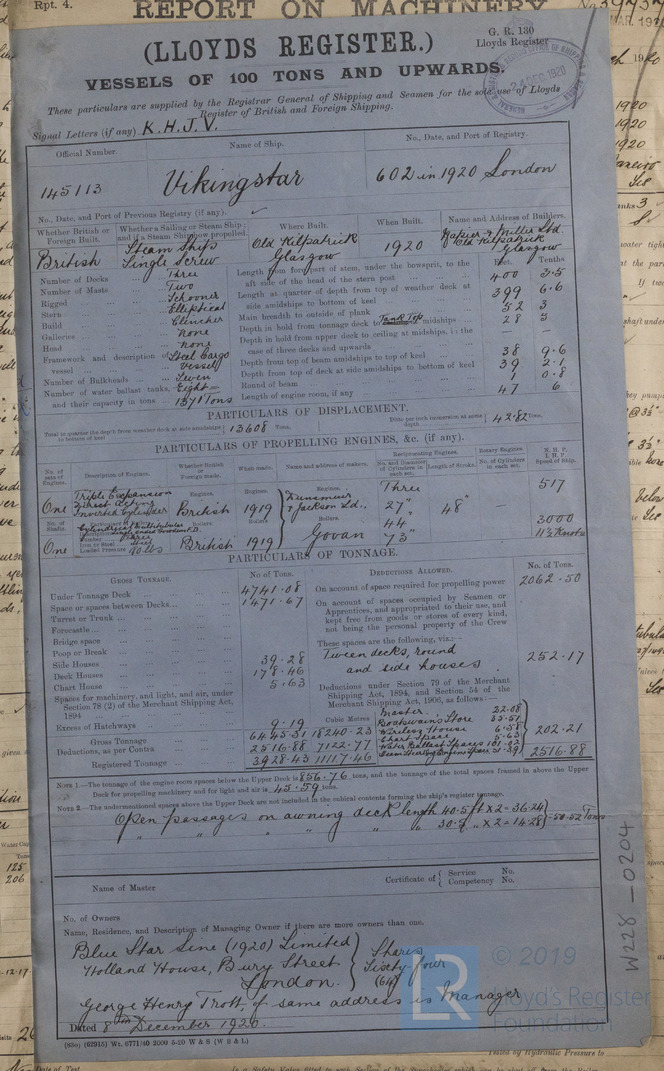 Rpt. 4.
REPORT ON MACHINERY
(LLOYDS REGISTER.)
G. R. 130
Lloyds Register
VESSELS OF 100 TONS AND UPWARDS.
24 DEC 1920
These particulars are supplied by the Registrar General of Shipping and Seamen for the sole use of Lloyds
Register of British and Foreign Shipping.
Signal Letters (if any) K.H.J.V.
Official Number. Name of Ship. No., Date, and Port of Registry.
145113 Vikingstar 602 in 1920 London
No., Date, and Port of Previous Registry (if any).
Whether British or Foreign Built. Whether a Sailing or Steam Ship; and if a Steam Ship how propelled. Where Built. When Built. Name and Address of Builders.
British Steam Ship Single Screw Old Kilpatrick Glasgow 1920 Napier & Miller Ltd. Old Kilpatrick Glasgow
Number of Decks Three
Number of Masts Two
Rigged Schooner
Stern Elliptical
Build Clincher
Galleries None
Head None
Framework and description of vessel Steel Cargo Vessel
Number of Bulkheads Seven
Number of water ballast tanks, Eight =
and their capacity in tons 1371 Tons
Feet. Tenths
Length from fore part of stem, under the bowsprit, to the aft side of the head of the stern post 400 3.5
Length at quarter of depth from top of weather deck at side amidships to bottom of keel 399 6.6
Main breadth to outside of plank 52 3
Depth in hold from tonnage deck to Tank Top midships 28 3
Depth in hold from upper deck to ceiling at midships, in the case of three decks and upwards —
Depth from top of beam amidships to top of keel 38 9.6
Depth from top of deck at side amidships to bottom of keel 39 2.1
Round of beam 1 0.8
Length of engine room, if any 47 6
PARTICULARS OF DISPLACEMENT.
Total to quarter the depth from weather deck at side amidships to bottom of keel 13608 Tons. Ditto per inch immersion at same depth 42.82 Tons.
PARTICULARS OF PROPELLING ENGINES, &c. (if any).
No. of sets of Engines. Description of Engines. Whether British or Foreign made. When made. Name and address of makers. Reciprocating Engines. No. and Diameter of Cylinders in each set. Length of Stroke. Rotary Engines. No. of Cylinders in each set. N.H.P. I.H.P. Speed of Ship.
One Triple Expansion Direct Acting Inverted Cylinder Engines. British Engines. 1919 Engines. Dunsmuir & Jackson Ld., Three 517
27" 48"
No. of Shafts. Boilers Boilers Boilers 44 3000
One Loaded Pressure 180 lbs British 1919 Govan 73" 11½ Knots
PARTICULARS OF TONNAGE.
GROSS TONNAGE. No. of Tons. DEDUCTIONS ALLOWED. No. of Tons.
Under Tonnage Deck 4741.08
Space or spaces between Decks 1471.67
Turret or Trunk
Forecastle
Bridge space
Poop or Break
Side Houses 39.28
Deck Houses 178.46
Chart House 5.63
Spaces for machinery, and light, and air, under Section 78 (2) of the Merchant Shipping Act, 1894
Excess of Hatchways 9.19
Cubic Metres
Gross Tonnage 6445.31 18240.23
Deductions, as per Contra 2516.88 7122.77
Registered Tonnage 3928.43 11117.46
On account of space required for propelling power 2062.50
On account of spaces occupied by Seamen or Apprentices, and appropriated to their use, and kept free from goods or stores of every kind, not being the personal property of the Crew
These spaces are the following, viz.:—
Tween decks, round and side houses 252.17
Deductions under Section 79 of the Merchant Shipping Act, 1894, and Section 54 of the Merchant Shipping Act, 1906, as follows:—
Master 22.08
Boatswain's Store 35.51
Wireless House 6.58
Chart Space 5.63
Water Ballast Spaces 101.02
202.21
2516.88
NOTE 1.—The tonnage of the engine room spaces below the Upper Deck is 856.76 tons, and the tonnage of the total spaces framed in above the Upper
Deck for propelling machinery and for light and air is 45.59 tons.
NOTE 2.—The undermentioned spaces above the Upper Deck are not included in the cubical contents forming the ship's register tonnage.
Open passages on awning deck length 40.5 ft x 2 = 36.24
" " " " " " 30.5 " x 2 = 14.28 = 50.52 Tons
Name of Master Certificate of Service No. Competency No.
No. of Owners
Name, Residence, and Description of Managing Owner if there are more owners than one.
Blue Star Line (1920) Limited Shares
Holland House, Bury Street Sixty-four
London. (64)
George Henry Trott, of same address is Manager
Dated 8th December 1920.
(88o) (62915) Wt. 6771/40 2000 5-20 W & S (W B & L)
W228-0204
LR
© 2019
Lloyd's Register
Foundation
Tested by Hydraulic Pressure to